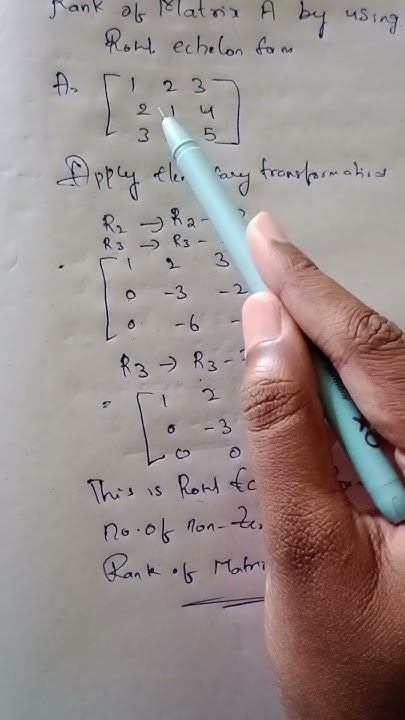 Rank of Matrix A by using
Row echelon form
A = 1 2 3
2 1 4
3 5
Apply transformation
R2 → R2 -
R3 → R3 -
1 2 3
0 -3 -2
0 -6 -
R3 → R3 -
= 1 2
0 -3
0 0
This is Row
no. of non-
Rank of